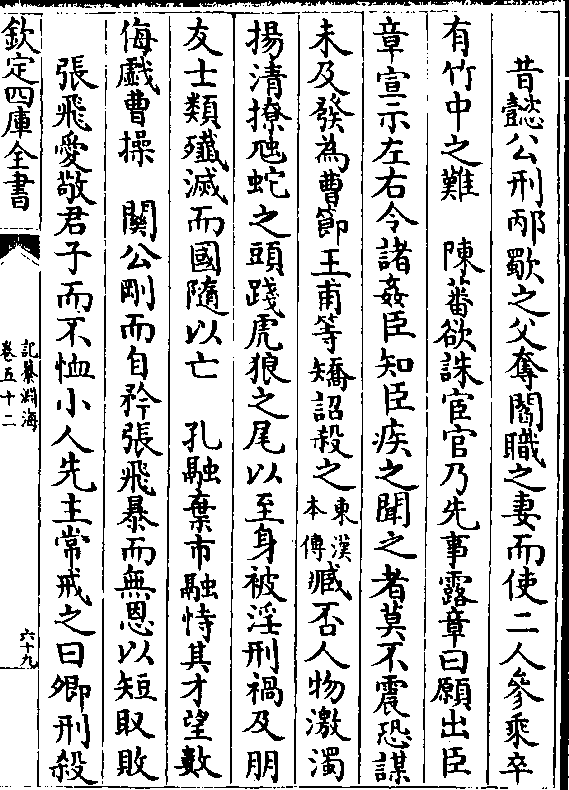 昔懿公刑邴歜之父奪閻職之妻而使二人參乘卒
有竹中之難　陳蕃欲誅宦官乃先事露章曰願出臣
章宣示左右令諸姦臣知臣疾之聞之者莫不震恐謀
未及發為曹節王甫等矯詔殺之東漢本傳臧否人物激濁
揚清撩虺蛇之頭踐虎狼之尾以至身被淫刑禍及朋
友士類殲滅而國隨以亡　孔融棄市融恃其才望數
侮戲曹操　關公剛而自矜張飛暴而無恩以短取敗
張飛愛敬君子而不恤小人先主常戒之曰卿刑殺
欽定四庫全書
記纂淵海
卷五十二
六十九